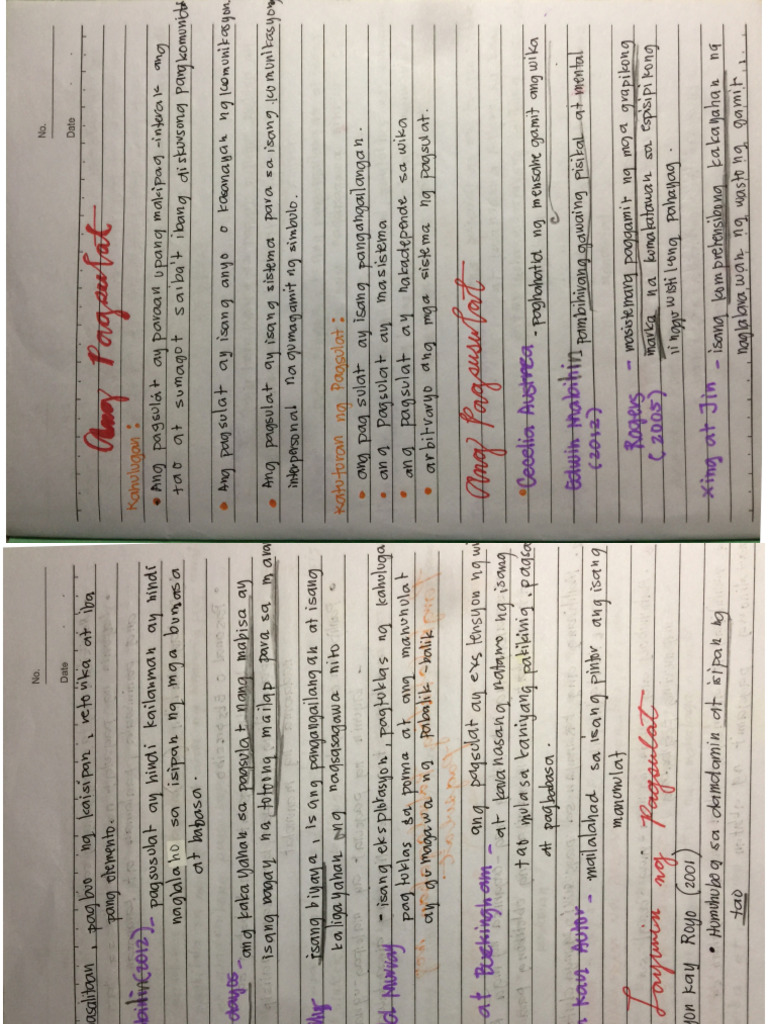 No.
Date
Ang Pagsulat
Kahulugan:
• Ang pagsulat ay paraan upang makipag-interak ang
tao at sumagot saiba't ibang diskursong pangkomunidad
• Ang pagsulat ay isang anyo o kasanayan ng komunikasyon
• Ang pagsulat ay isang sistema para sa isang komunikasyong
interpersonal na gumagamit ng simbulo.
Katuturan ng Pagsulat:
• ang pag sulat ay isang pangangailangan.
• ang pagsulat ay masistema
• ang pagsulat ay nakadepende sa wika
• arbitraryo ang mga sistema ng pagsulat.
Ang Pagsusulat
• Cecelia Austrea - paghahatid ng mensahe gamit ang wika
Edwin Mabilin pambihirang gawaing pisikal at mental
(2012)
Rogers - masistemang paggamit ng mga grapikong
(2005) marka na kumakatawan sa espisipikong
linggwistikong pahayag.
Xing at Jin - isang komprehensibong kakanyahan ng
naglalarawan ng wasto ng gamit,
No.
Date
asalitaan, pagbuo ng kaisipan, retorika at iba
pang elemento.
bilin (2012) - pagsusulat ay hindi kailanman ay hindi
naglalaho sa isipan ng mga bumasa
at babasa.
dayos - ang kakayahan sa pagsulat nang mabisa ay
isang bagay na totong mailap para sa maram
isang biyaya, isang pangangailangan at isang
kaligayahan ng nagsasagawa nito
d Murray - isang eksplotasyon, pagtuklas ng kahuluga
pagtuklas sa porma at ang manunulat
ay gumagawa ng pabalik-balik
at Peckingham - ang pagsulat ay ekstensyon ng wi
at karanasang natamo ng isang
tao mula sa kaniyang pakikinig, pagsa
at pagbabasa.
kay Autor - mailalahad sa isang pintor ang isang
manunulat
Layunin ng Pagsulat
yon kay Royo (2001)
• Humuhubog sa damdamin at isipan ng
tao